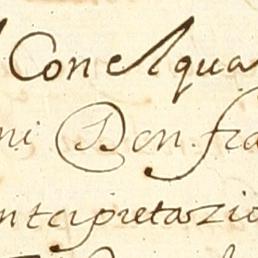 Con Aqua
ni Don. fra
nterpretazio